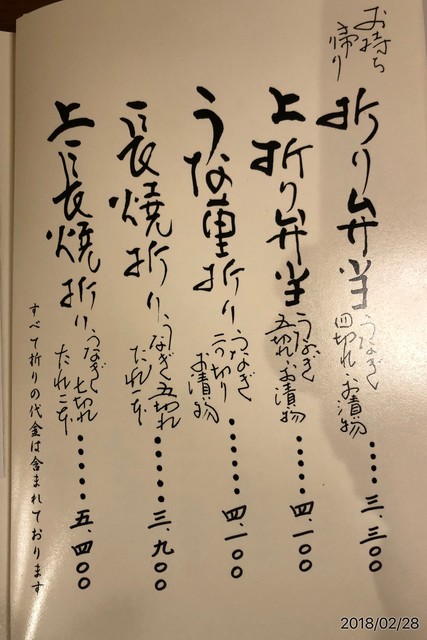 お持ち
帰り
折り弁当 うなぎ
四切れ、お漬物 ……三、三〇〇
上折り弁当 うなぎ
五切れ、お漬物 ……四、一〇〇
うな重折り うなぎ
二つ切り
お漬物 ……四、一〇〇
長焼折り うなぎ五切れ
たれ一本 ……三、九〇〇
上長焼折り うなぎ七切れ
たれ二本 ……五、四〇〇
すべて折りの代金は含まれております
2018/02/28